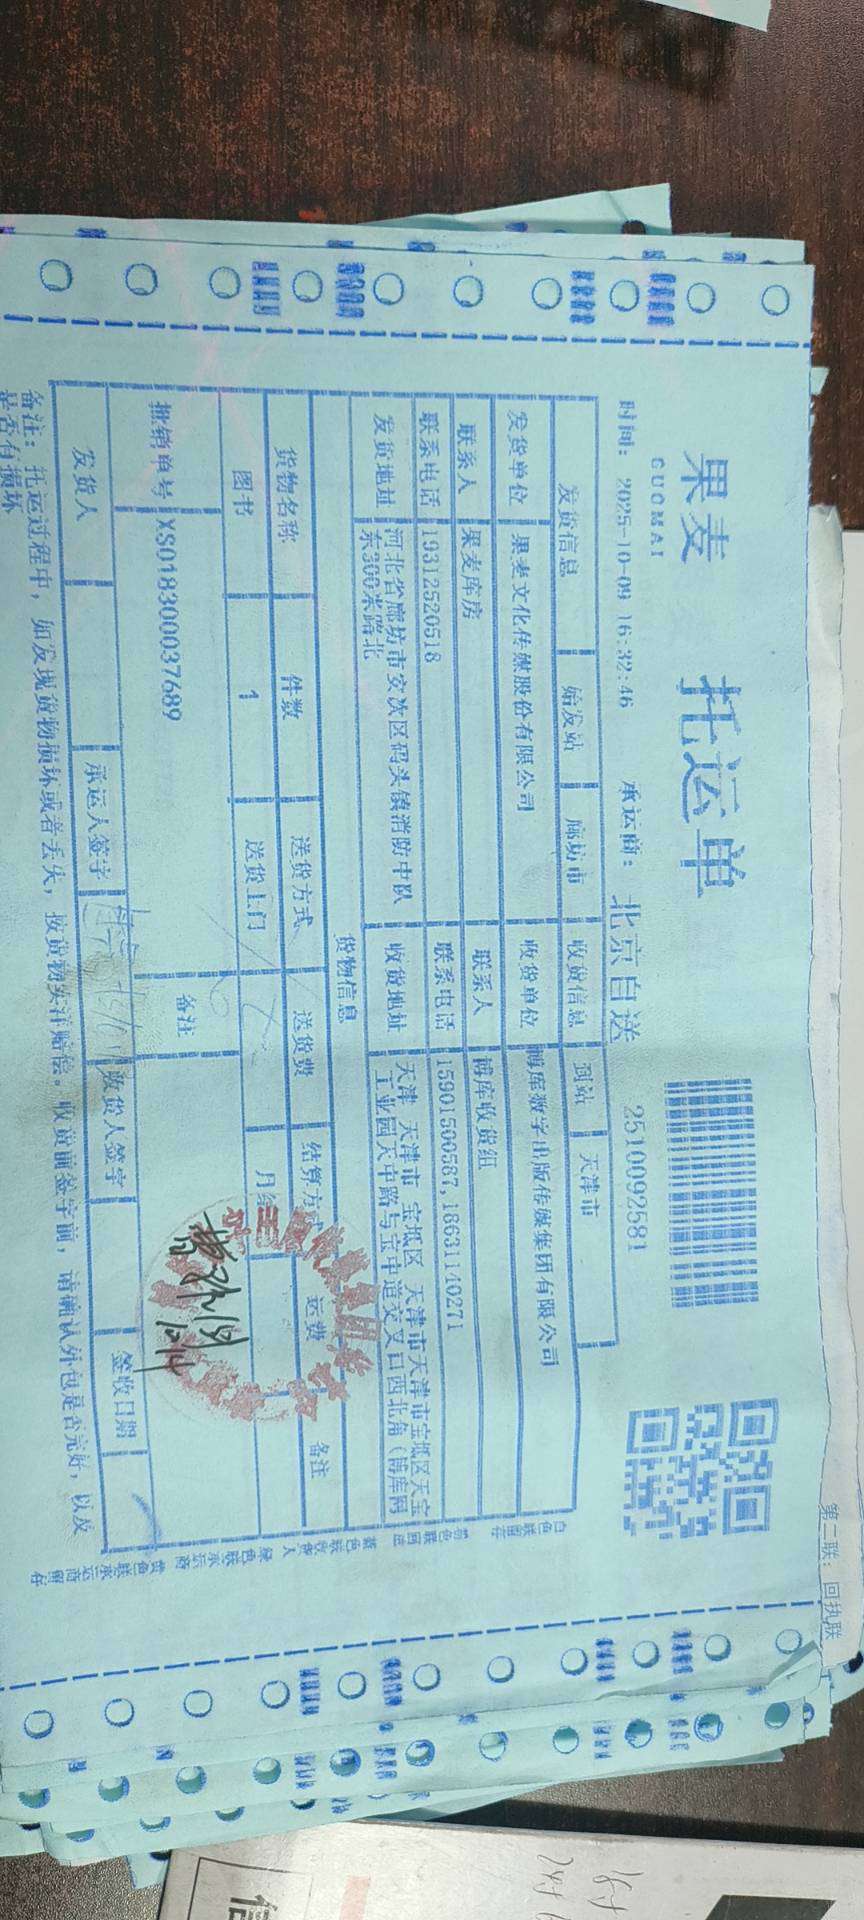 果麦
GUOMAI
托运单
时间: 2025-10-09 16:32:46 承运商: 北京自送 2510092581
发货信息 始发站 廊坊市 收货信息 到站 天津市
发货单位 果麦文化传媒股份有限公司 收货单位 博库数字出版传媒集团有限公司
联系人 果麦库房 联系人 博库收货组
联系电话 19312520518 联系电话 15901500587,18631140271
发货地址 河北省廊坊市安次区码头镇消防中队东300米路北 收货地址 天津 天津市 宝坻区 天津市天津市宝坻区天宝工业园天中路与宝中道交叉口西北角(博库网
货物信息
货物名称 件数 送货方式 送货费 结算方式 运费 备注
图书 1 送货上门 月结
批销单号 XS018300037689 备注
发货人 承运人签字 收货人签字 签收日期
备注: 托运过程中, 如发现货物损坏或者丢失, 按货物实洋赔偿。收货前签字前, 请确认外包是否完好, 以及
是否有损坏
第二联: 回执联
信